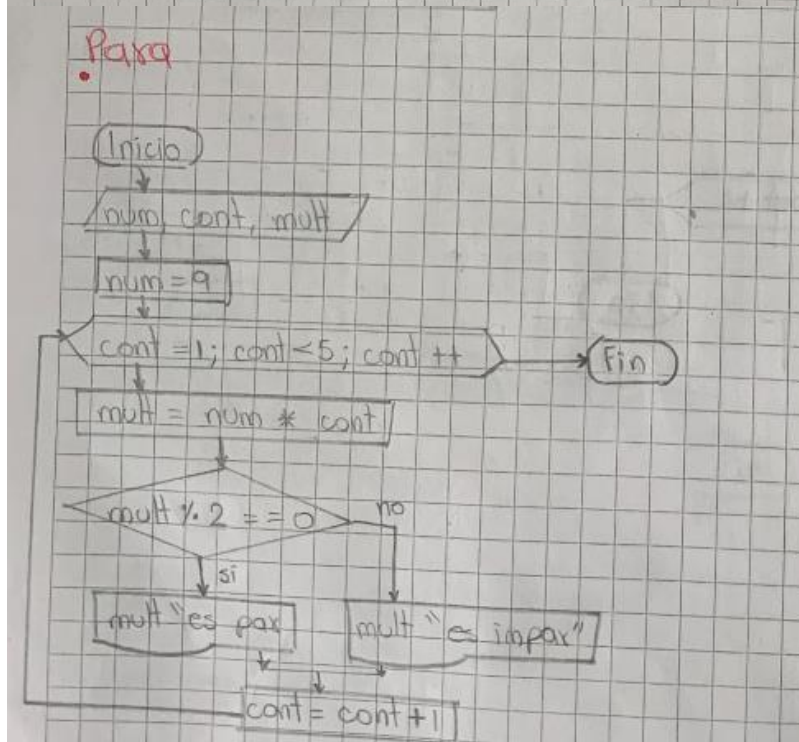 Para
Inicio
num, cont, mult
num = 9
cont = 1; cont < 5; cont ++
Fin
mult = num * cont
mult % 2 == 0
no
si
mult "es par
mult "es impar"
cont = cont + 1